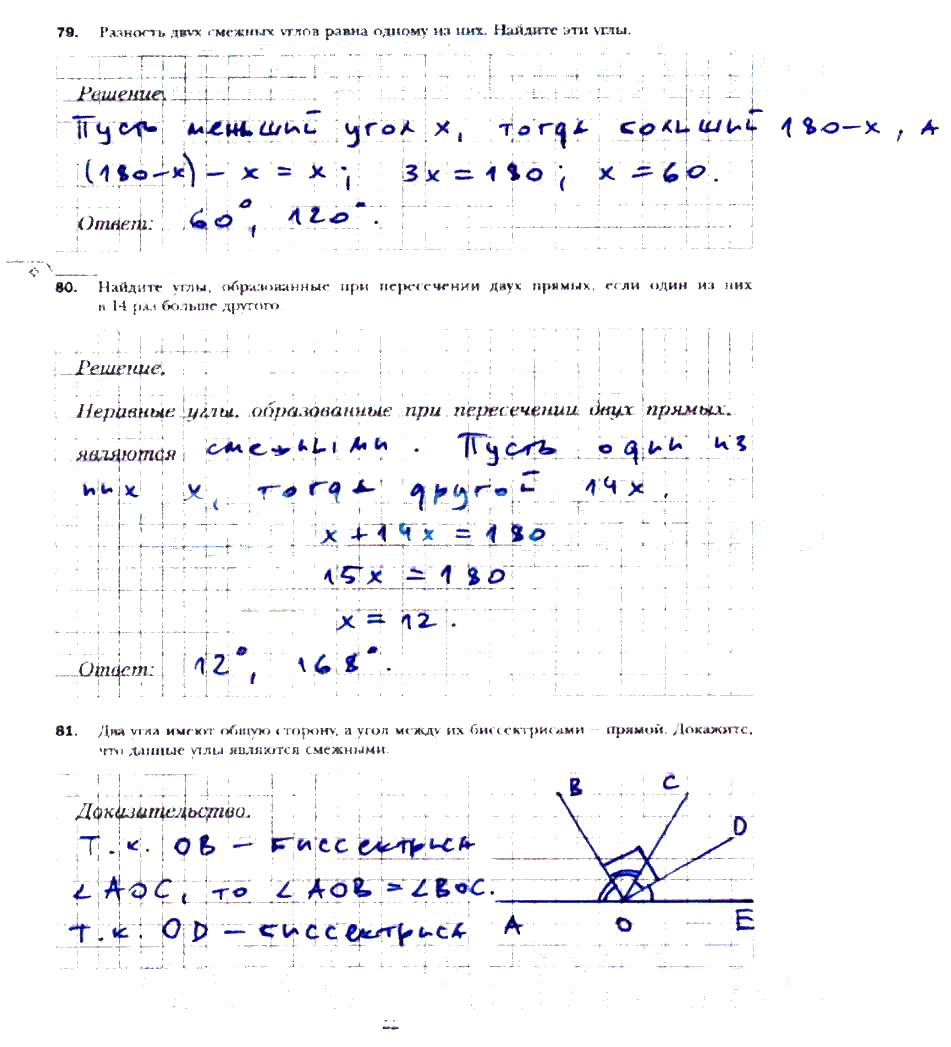 79. Разность двух смежных углов равна одному из них. Найдите эти углы.
Решение.
Пусть меньший угол x, тогда больший 180-x, а
(180-x) - x = x; 3x = 180; x = 60.
Ответ: 60°, 120°.
80. Найдите углы, образованные при пересечении двух прямых, если один из них
в 14 раз больше другого.
Решение.
Неравные углы, образованные при пересечении двух прямых,
являются смежными. Пусть один из
них x, тогда другой 14x.
x + 14x = 180
15x = 180
x = 12.
Ответ: 12°, 168°.
81. Два угла имеют общую сторону, а угол между их биссектрисами – прямой. Докажите,
что данные углы являются смежными.
Доказательство.
Т.к. OB – биссектриса
∠AOC, то ∠AOB = ∠BOC.
Т.к. OD – биссектриса
B C
D
A O E